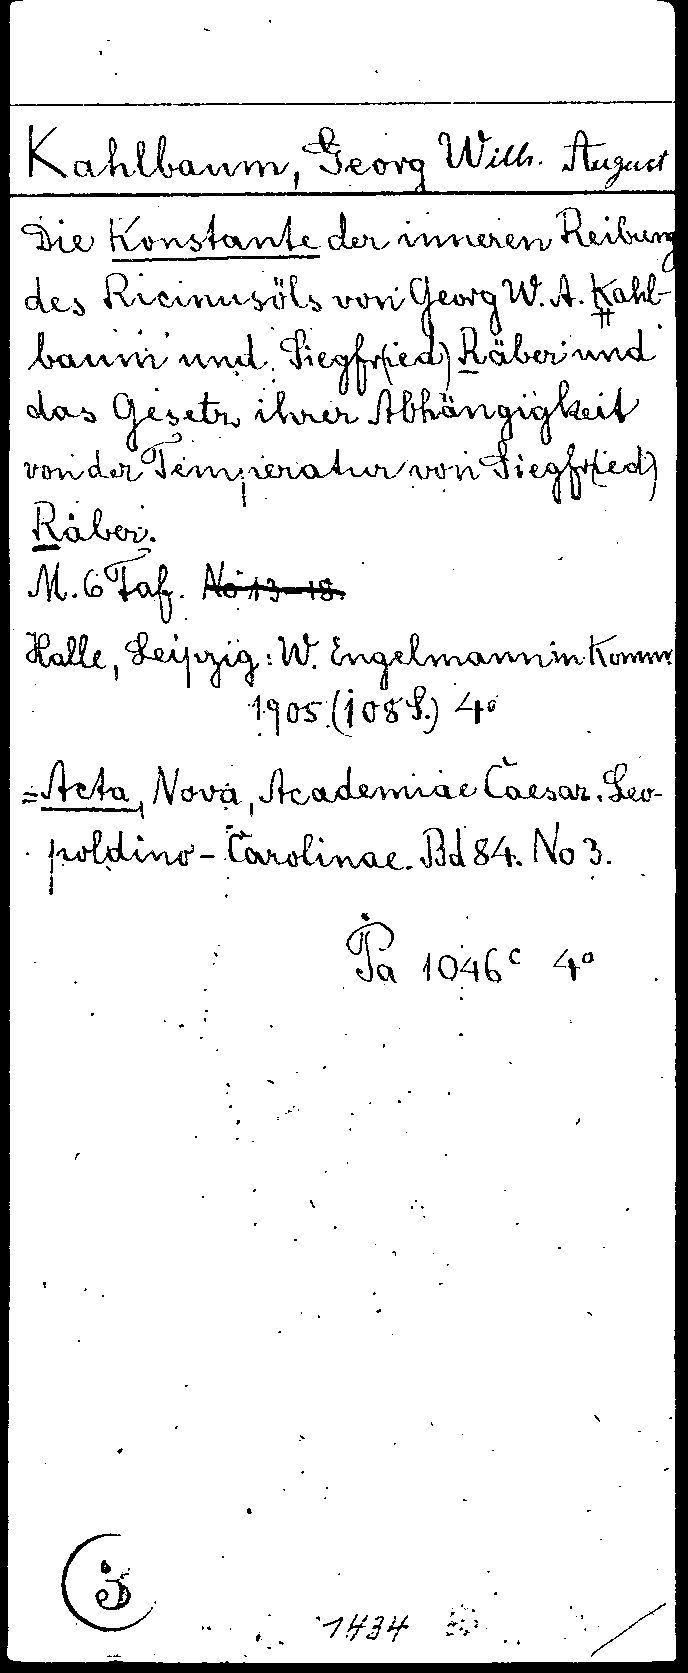 Kahlbaum, Georg Wilh. August
Die Konstante der inneren Reibung
des Ricinusöls von Georg W. A. Kahl-
baum und Siegfr(ied) Räber und
das Gesetz ihrer Abhängigkeit
von der Temperatur von Siegfr(ied)
Räber.
M. 6 Taf. No 13-18.
Halle, Leipzig: W. Engelmann in Komm.
1905 (108 S.) 4°
= Acta, Nova, Academiae Caesar. Leo-
poldino-Carolinae. Bd 84. No 3.
Pa 1046c 4°
1434